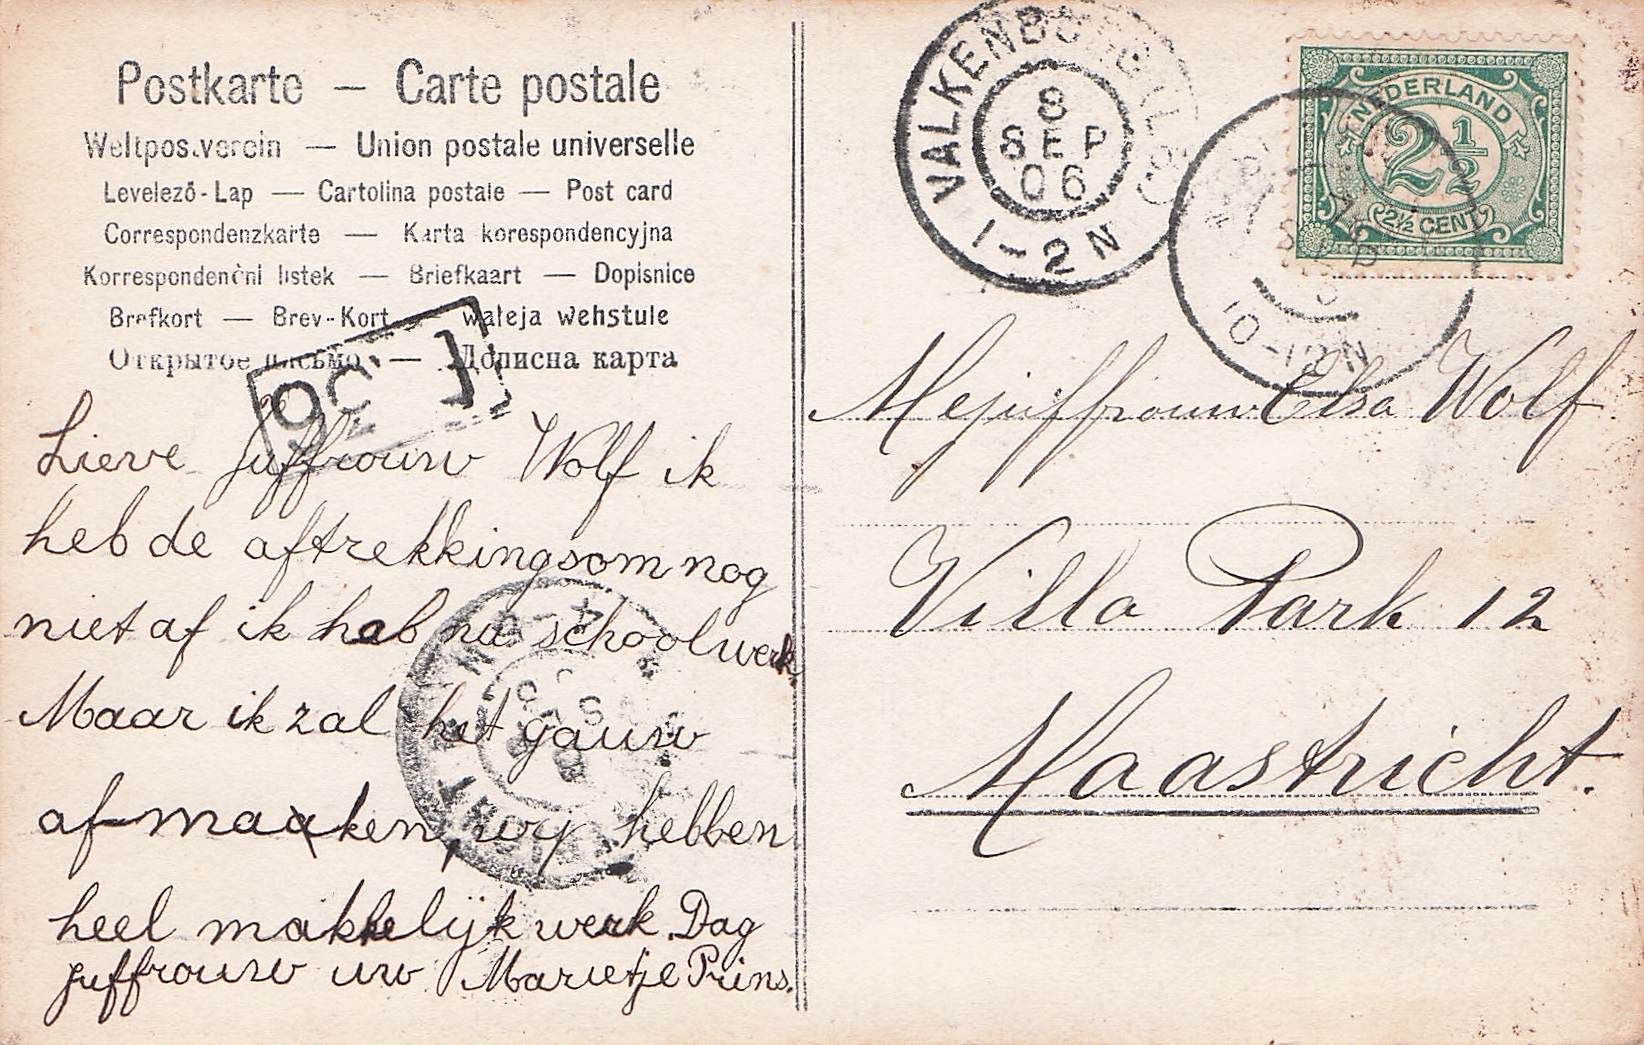 Postkarte — Carte postale
Weltpostverein — Union postale universelle
Levelező-Lap — Cartolina postale — Post card
Correspondenzkarte — Karta korespondencyjna
Korrespondenční listek — Briefkaart — Dopisnice
Brefkort — Brev-Kort — waleja wehstule
Открытое письмо — Дописна карта
Lieve juffrouw Wolf ik
heb de aftrekkingsom nog
niet af ik heb nu schoolwerk
Maar ik zal het gauw
af maaken, wy hebben
heel makkelijk werk. Dag
juffrouw uw Marietje Prins.
VALKENBURG
8
SEP
06
1-2N
10-12N
NEDERLAND
2½
2½ CENT
Mejuffrouw Elsa Wolf
Villa Park 12
Maastricht.